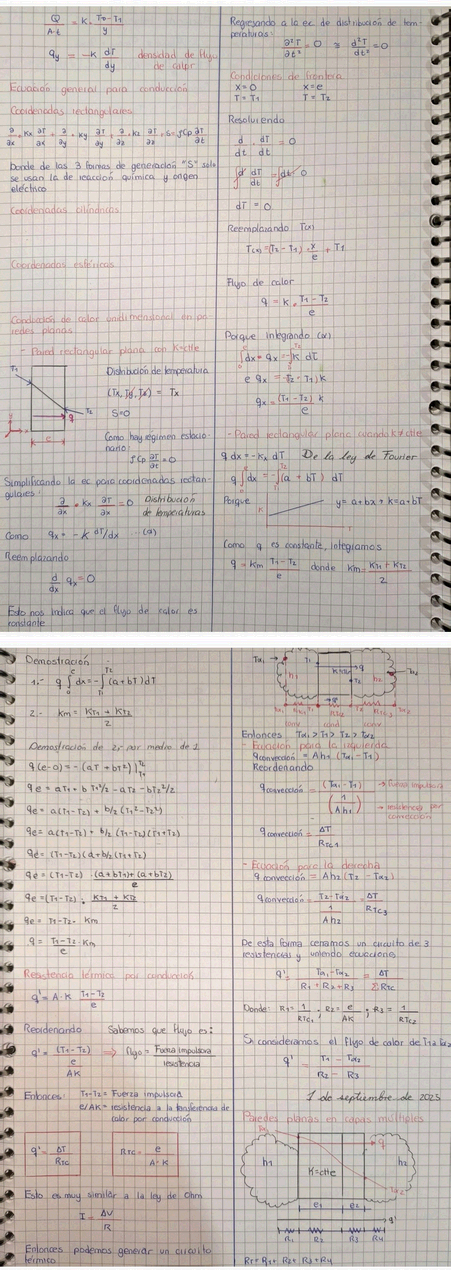 Q/A·t = K · T0-T1/y
qy = -K dT/dy densidad de flujo de calor
Ecuación general para conducción
Coordenadas rectangulares
∂/∂x · Kx ∂T/∂x + ∂/∂y · Ky ∂T/∂y + ∂/∂z · Kz ∂T/∂z + S = ρCp ∂T/∂t
Donde de las 3 formas de generación "S" solo
se usan la de reacción química y origen
eléctrico
Coordenadas cilíndricas
Coordenadas esféricas
Conducción de calor unidimensional en pa-
redes planas
- Pared rectangular plana con K=ctte
T1
T2
q
e
Distribución de temperatura
(Tx, Ty, Tz) = Tx
S=0
Como hay régimen estacio-
nario:
ρCp ∂T/∂t = 0
Simplificando la ec para coordenadas rectan-
gulares:
∂/∂x · Kx ∂T/∂x = 0 Distribución
de temperaturas
Como qx = -K dT/dx ...(α)
Reemplazando
d/dx qx = 0
Esto nos indica que el flujo de calor es
constante
Regresando a la ec de distribución de tem-
peraturas:
∂²T/∂t² = 0 ≅ d²T/dt² = 0
Condiciones de frontera
x=0 x=e
T=T1 T=T2
Resolviendo
d/dt · dT/dt = 0
∫d dT/dt = ∫dt · 0
dT = 0
Reemplazando T(x)
T(x) = (T2 - T1) · x/e + T1
Flujo de calor
q = K · T1-T2/e
Porque integrando (α)
∫dx · qx = -∫K dT
e qx = -(T2-T1)K
qx = (T1-T2)/e K
- Pared rectangular plana cuando K≠ctte
q dx = -Kx dT De la ley de Fourier
q∫dx = -∫(a + bT) dT
Porque
K
T
y = a+bx → k=a+bT
Como q es constante, integramos
q = Km T1-T2/e donde Km = KT1+KT2/2
Demostración
1.- q∫dx = -∫(a+bT)dT
2.- Km = KT1 + KT2/2
Demostración de 2 por medio de 1
q(e-0) = -(aT + bT²/2)|
qe = aT1 + bT1²/2 - aT2 - bT2²/2
qe = a(T1-T2) + b/2 (T1²-T2²)
qe = a(T1-T2) + b/2 (T1-T2)(T1+T2)
qe = (T1-T2)(a+b/2(T1+T2)
qe = (T1-T2) · (a+bT1)+(a+bT2)/2
qe = (T1-T2) · KT1 + KT2/2
qe = T1-T2 · Km
q = T1-T2/e · Km
Resistencia térmica por conducción
q' = A·K T1-T2/e
Reordenando Sabemos que flujo es:
q' = (T1-T2)/e/AK ⇒ flujo = Fuerza impulsora/resistencia
Entonces: T1-T2 = Fuerza impulsora
e/AK = resistencia a la transferencia de
calor por conducción
q' = ΔT/RTC
RTC = e/A·K
Esto es muy similar a la ley de Ohm
I = ΔV/R
Entonces podemos generar un circuito
térmico
Tα1
T1
h1
K=ctte
q
T2
h2
conv cond conv
Entonces Tα1 > T1 > T2 > Tα2
- Ecuación para la izquierda
q convección = Ah1 (Tα1 - T1)
Reordenando
q convección = (Tα1 - T1)/(1/Ah1) → Fuerza impulsora
→ resistencia por
convección
q convección = ΔT/RTC1
- Ecuación para la derecha
q convección = Ah2 (T2 - Tα2)
q convección = T2-Tα2/1/Ah2 = ΔT/RTC3
De esta forma cerramos un circuito de 3
resistencias y uniendo ecuaciones
q' = Tα1-Tα2/R1+R2+R3 = ΔT/ΣRTC
Donde: R1 = 1/RTC1 ; R2 = e/AK ; R3 = 1/RTC2
Si consideramos el flujo de calor de T1 a Tα2
q' = T1 - Tα2/R2 - R3
1 de septiembre de 2025
Paredes planas en capas múltiples
h1
K=ctte
q
h2
e1 e2
q'
R1 R2 R3 R4
RT = R1 + R2 + R3 + R4